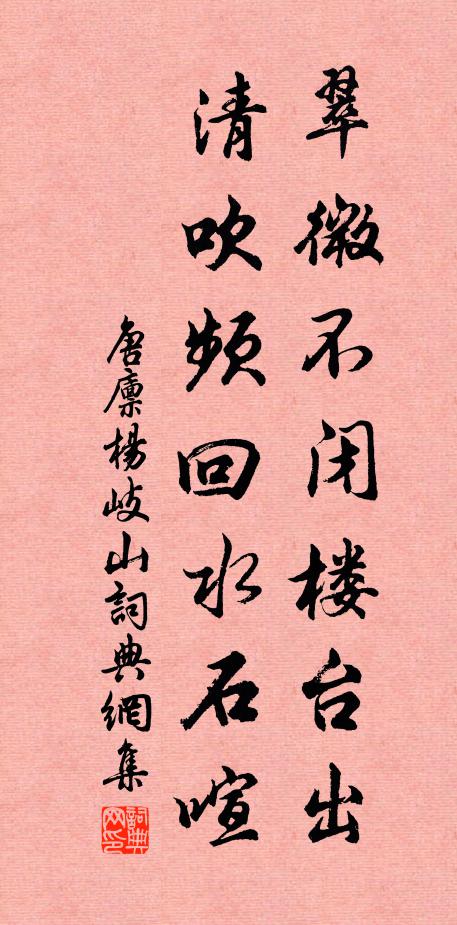 翠微不闭楼台出
清吹频回水石喧
唐廪杨岐山詞典網集
詞典网印